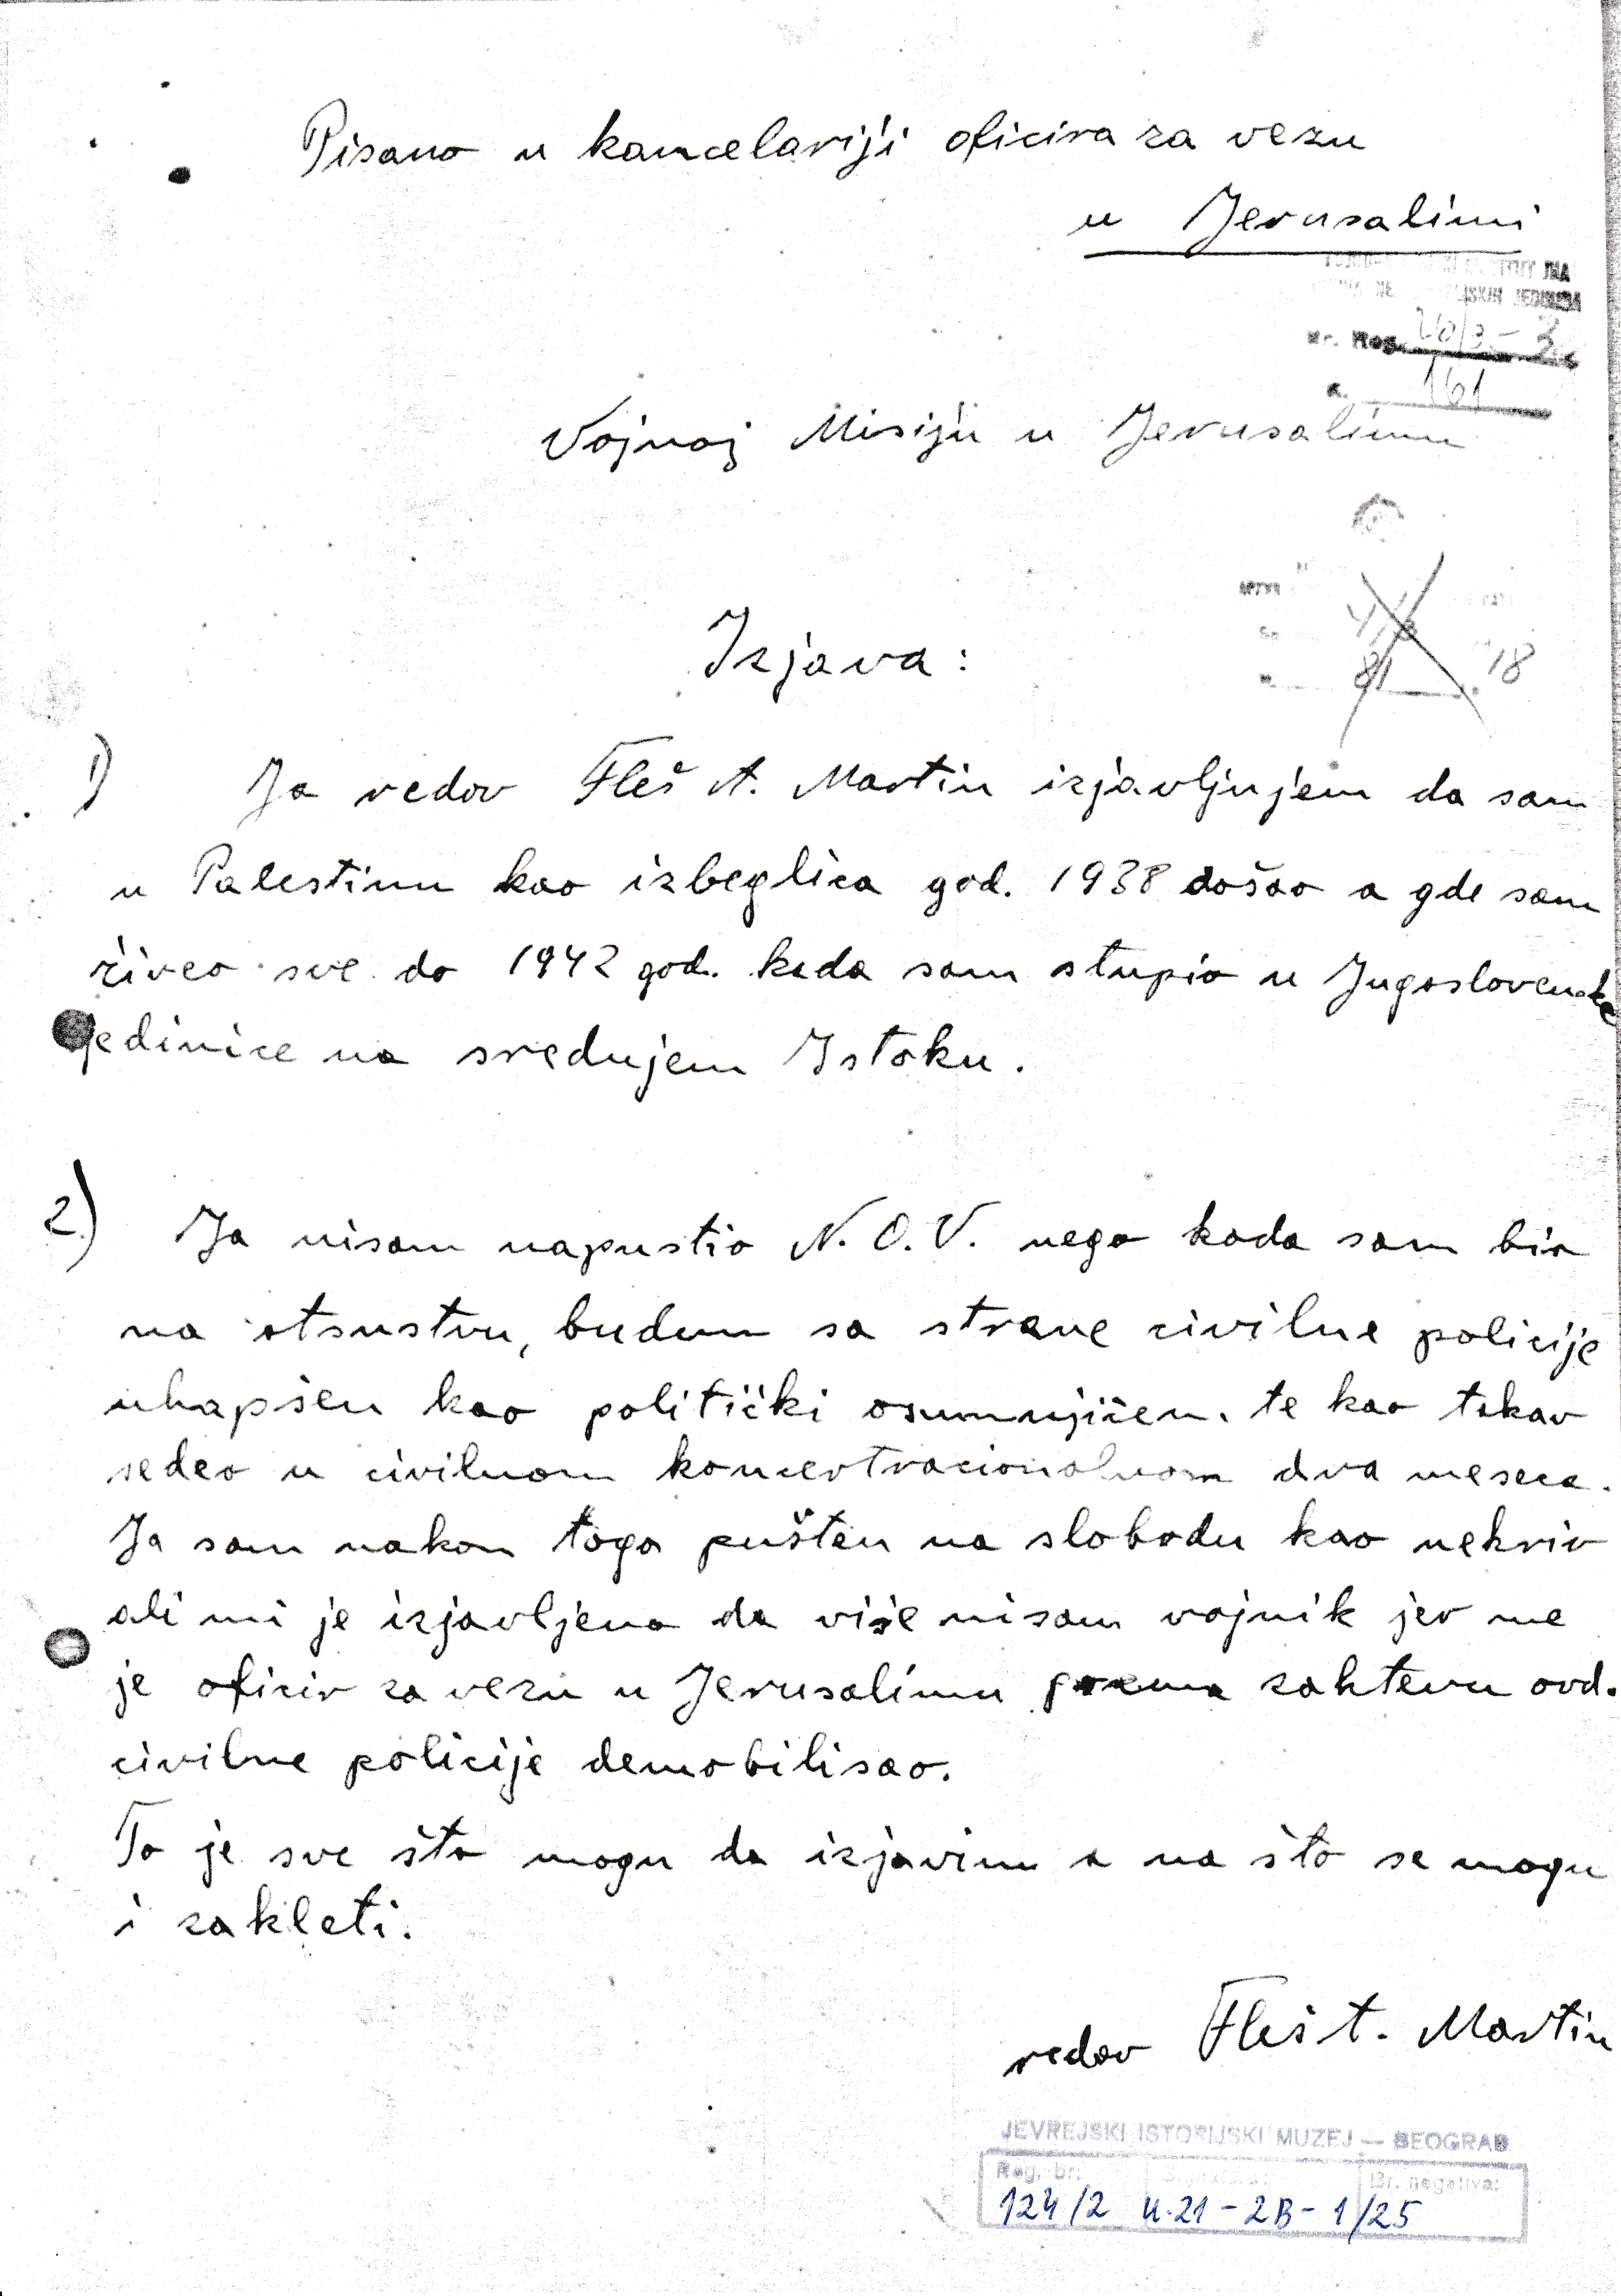 Pisano u kancelariji oficira za vezu
u Jerusalimi
JNA
JEDINICA
Reg. 20/3-2
k. 161
Vojnoj Misiji u Jerusalimu
Izjava:
81 18
1) Ja redov Fleš A. Martin izjavljujem da sam
u Palestinu kao izbeglica god. 1938 došao a gde sam
živeo sve do 1942 god. kada sam stupio u Jugoslovenske
jedinice na srednjem Istoku.
2) Ja nisam napustio N.O.V. nego kada sam bio
na otsustvu, budem sa strane civilne policije
uhapšen kao politički osumnjičen. te kao takav
sedeo u civilnom koncertracionalnom dva meseca.
Ja sam nakon toga pušten na slobodu kao nekriv
ali mi je izjavljeno da više nisam vojnik jer me
je oficir za vezu u Jerusalimu prema zahtevu ovd.
civilne policije demobilisao.
To je sve što mogu da izjavim a na što se mogu
i zakleti.
redov Fleš A. Martin
JEVREJSKI ISTORIJSKI MUZEJ — BEOGRAD
Reg. br: Signatura: Br. negativa:
124/2 K.21-2B-1/25